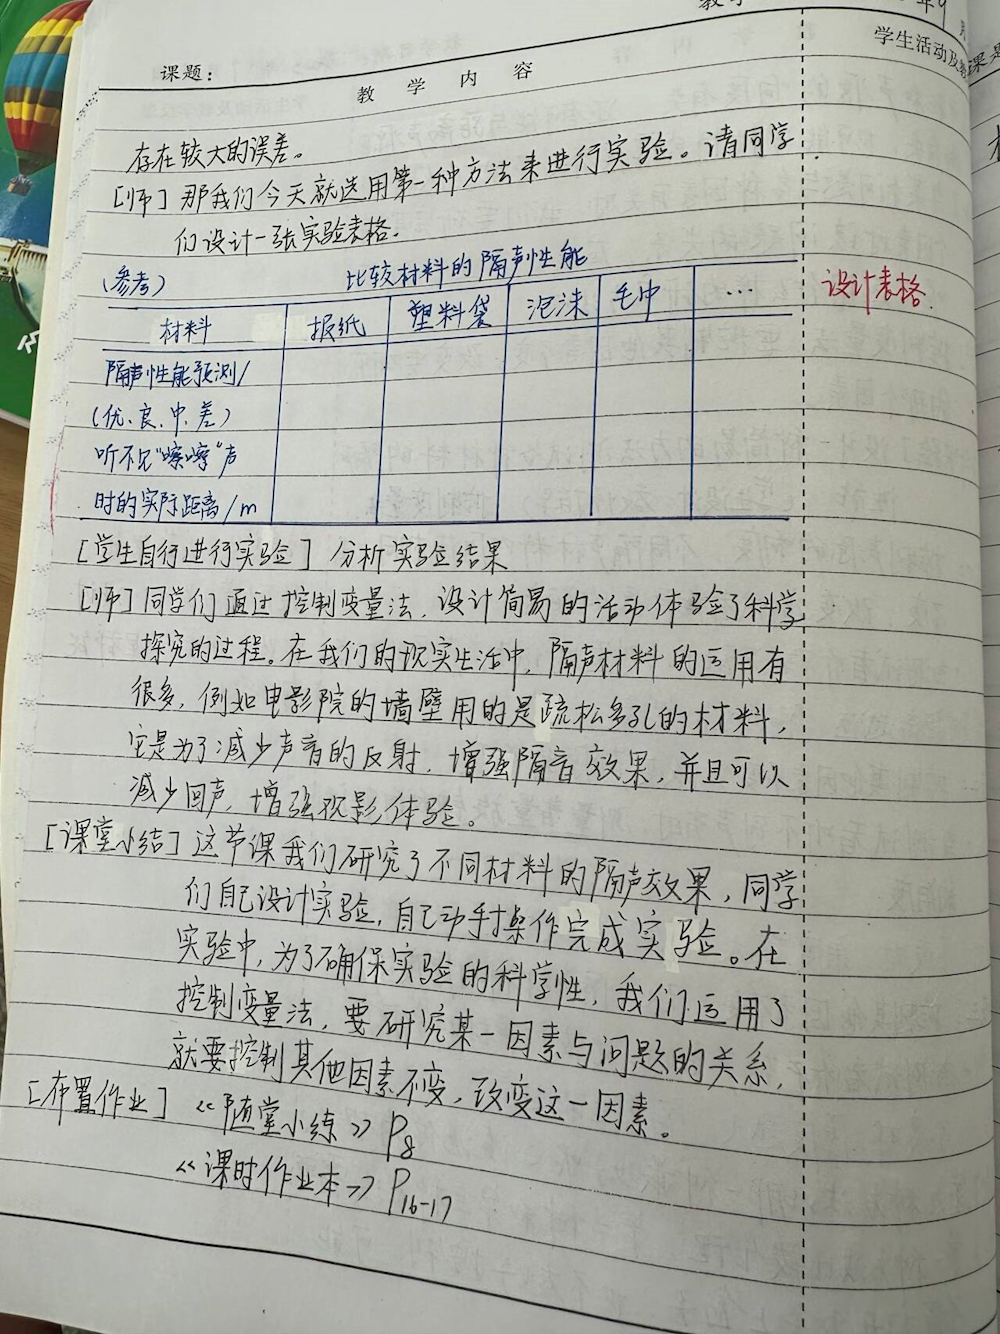 课题：
教 学 内 容
学生活动及
存在较大的误差。
[师] 那我们今天就选用第一种方法来进行实验。请同学
们设计一张实验表格。
(参考) 比较材料的隔声性能
设计表格
材料 报纸 塑料袋 泡沫 毛巾 …
隔声性能预测/
(优、良、中、差)
听不见"嚓嚓"声
时的实际距离/m
[学生自行进行实验] 分析实验结果
[师] 同学们通过控制变量法，设计简易的活动体验了科学
探究的过程。在我们的现实生活中，隔声材料的运用有
很多，例如电影院的墙壁用的是疏松多孔的材料，
它是为了减少声音的反射，增强隔音效果，并且可以
减少回声，增强观影体验。
[课堂小结] 这节课我们研究了不同材料的隔声效果，同学
们自己设计实验，自己动手操作完成实验。在
实验中，为了确保实验的科学性，我们运用了
控制变量法，要研究某一因素与问题的关系，
就要控制其他因素不变，改变这一因素。
[布置作业] 《随堂小练》 P8
《课时作业本》 P16-17